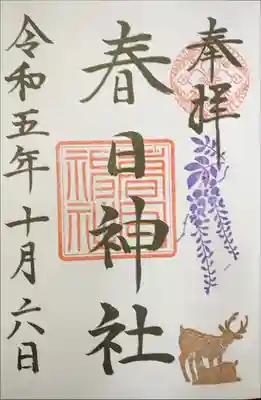 奉拝
春日神社
令和五年十月六日